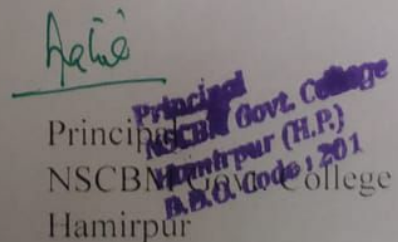 Principal
NSCBM Govt. College
Hamirpur (H.P.)
D.D.O. Code : 201
Principal
NSCBM Govt. College
Hamirpur